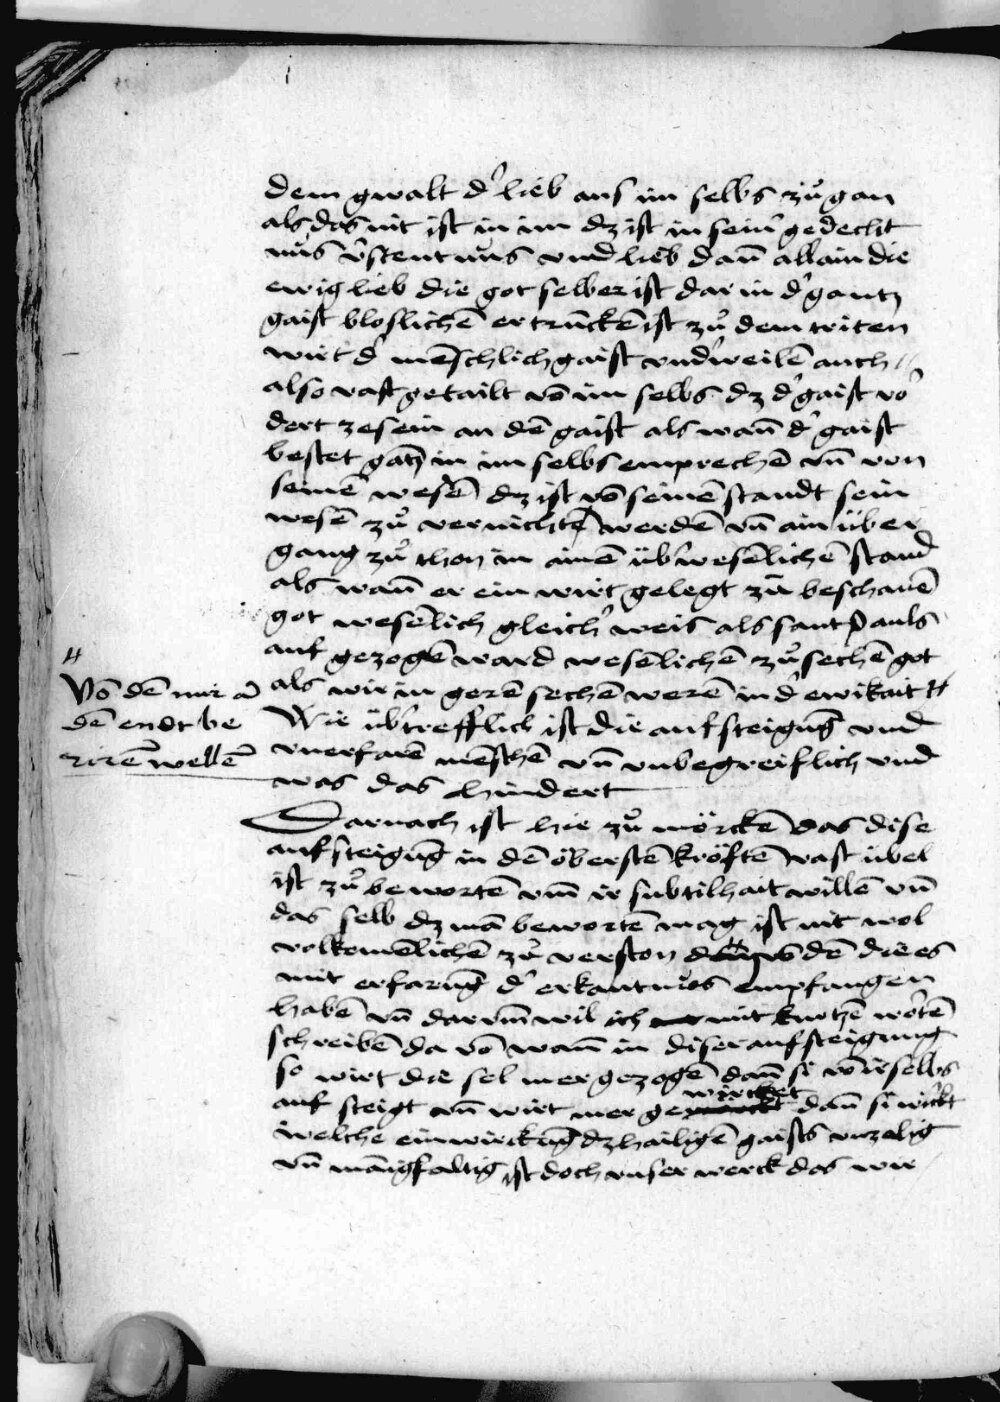 dem gwalt d' lieb aus im selbs zů gan
als das nit ist in im dz ist in sein' gedecht
nus v'stentnus vnd lieb dañ allain die
ewig lieb die got selber ist dar in d' gantz
gaist bloslichē ertrunckē ist zů dem triten
wirt d' menschlich gaist vnd'weilē auch
also vast getailt vō im selbs dz d' gaist vo'
dert ze sein an dē gaist als wañ d' gaist
bestet gātz in im selbs emprechē vñ von
seinē wesē dz ist vō seinē standt sein
wesē zů vernichtē werdē vñ ain über
gang zů thon in ainē üb'wesēlichē stand
als wañ er ein wirt gelegt zů beschauē
got wesēlich gleich' weis als sant pauls
auf gezogē ward wesēlichē zů sechē got
als wir in gerē sechē werē in d' ewikait #
#
Võ dē nur ā
dē endt be
rirē wellē
Wie üb'trefflich ist die aufsteigūg vnd
vnerfarē mēschē vñ vnbegreiflich vnd
was das hindert
Darnach ist hie zů mörckē das dise
aufsteigūg in dē öberstē kröftē vast übel
ist zů bewortē vm̄ ir subtilhait willē vñ
das selb dz mā bewortē mag ist nit wol
volkomēlichē zů verston dañ vō dē die es
mit erfarūg d' erkantnus empfangen
habē vñ darvm̄ wil ich mit kurtzē wortē
schreibē da vō wañ in diser aufsteigung
so wirt die sel mer gezogē dañ si vō ir selbs
wircket
auf steigt vñ wirt mer ge dañ si wirkt
welche einwirckūg dz hailigē gaists vnzelig
vñ mānigfaltig ist doch vnser werck das wir